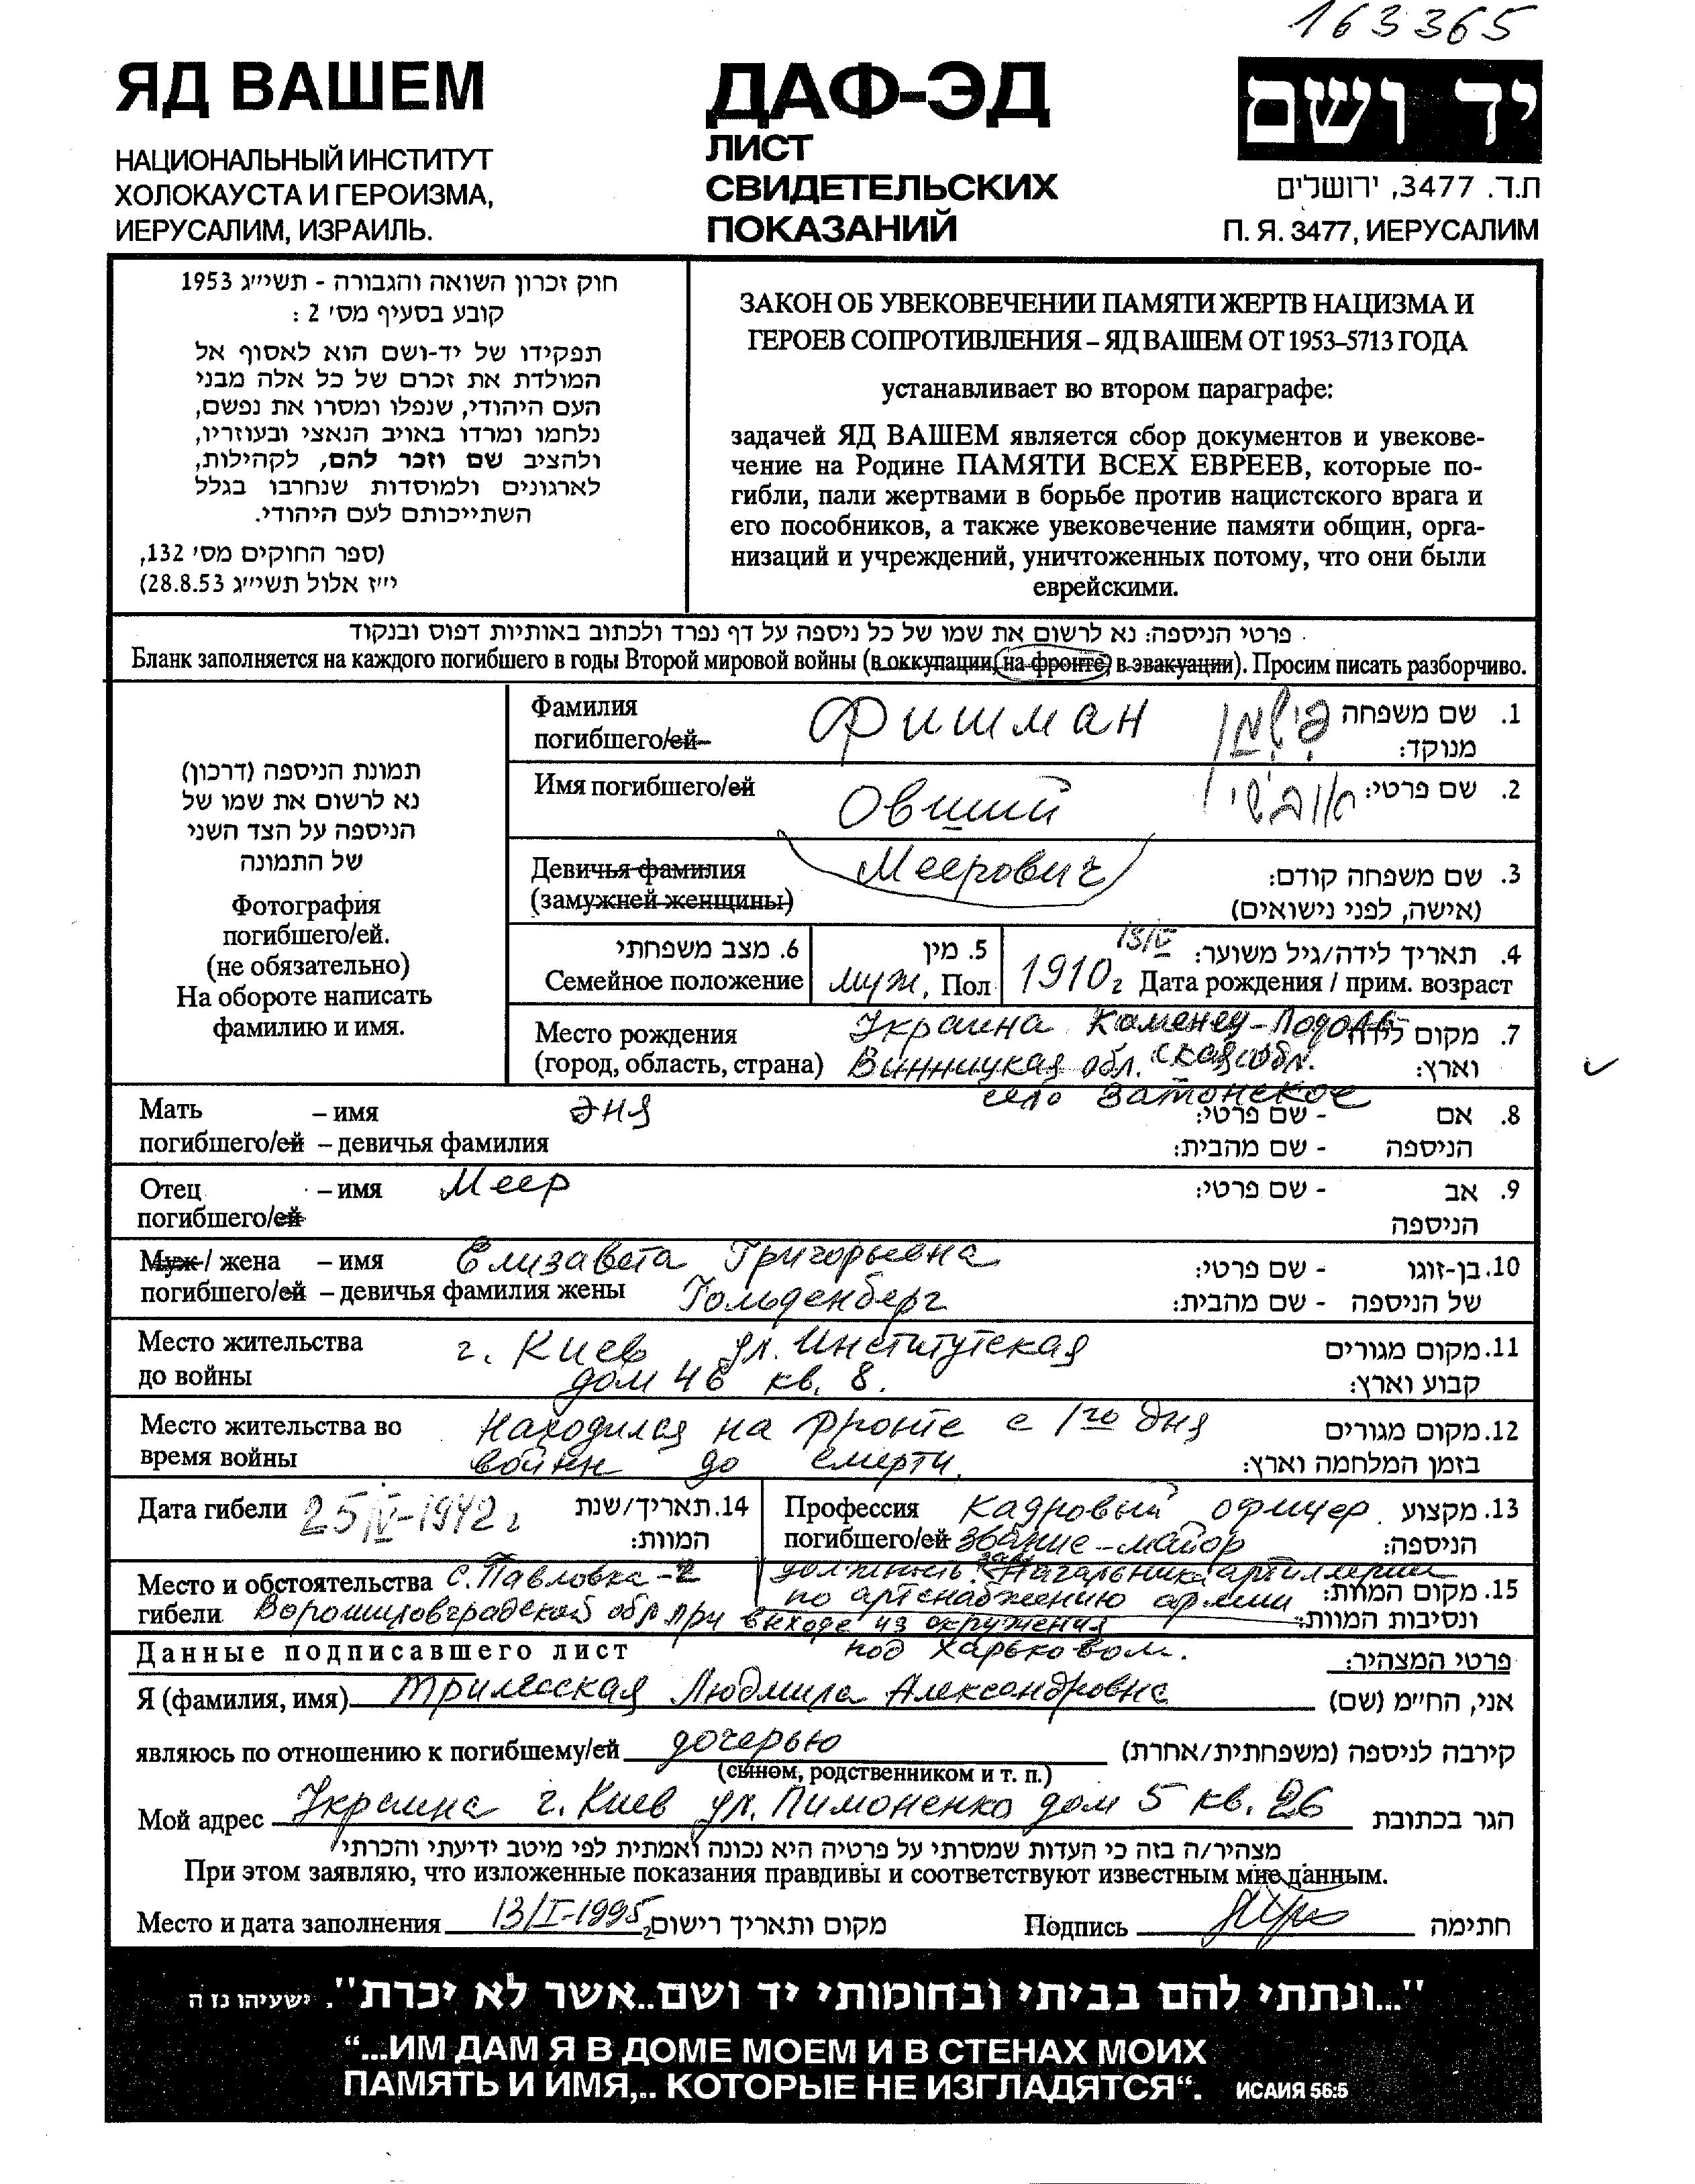 163365
ЯД ВАШЕМ
НАЦИОНАЛЬНЫЙ ИНСТИТУТ
ХОЛОКАУСТА И ГЕРОИЗМА,
ИЕРУСАЛИМ, ИЗРАИЛЬ.
ДАФ-ЭД
ЛИСТ
СВИДЕТЕЛЬСКИХ
ПОКАЗАНИЙ
יד ושם
ת.ד. 3477, ירושלים
П. Я. 3477, ИЕРУСАЛИМ
חוק זכרון השואה והגבורה - תשי״ג 1953
קובע בסעיף מס׳ 2 :
תפקידו של יד-ושם הוא לאסוף אל
המולדת את זכרם של כל אלה מבני
העם היהודי, שנפלו ומסרו את נפשם,
נלחמו ומרדו באויב הנאצי ובעוזריו,
ולהציב שם וזכר להם, לקהילות,
לארגונים ולמוסדות שנחרבו בגלל
השתייכותם לעם היהודי.
(ספר החוקים מס׳ 132,
י״ז אלול תשי״ג 28.8.53)
ЗАКОН ОБ УВЕКОВЕЧЕНИИ ПАМЯТИ ЖЕРТВ НАЦИЗМА И
ГЕРОЕВ СОПРОТИВЛЕНИЯ – ЯД ВАШЕМ ОТ 1953–5713 ГОДА
устанавливает во втором параграфе:
задачей ЯД ВАШЕМ является сбор документов и увекове-
чение на Родине ПАМЯТИ ВСЕХ ЕВРЕЕВ, которые по-
гибли, пали жертвами в борьбе против нацистского врага и
его пособников, а также увековечение памяти общин, орга-
низаций и учреждений, уничтоженных потому, что они были
еврейскими.
פרטי הניספה: נא לרשום את שמו של כל ניספה על דף נפרד ולכתוב באותיות דפוס ובנקוד
Бланк заполняется на каждого погибшего в годы Второй мировой войны (в оккупации, на фронте, в эвакуации). Просим писать разборчиво.
תמונת הניספה (דרכון)
נא לרשום את שמו של
הניספה על הצד השני
של התמונה
Фотография
погибшего/ей.
(не обязательно)
На обороте написать
фамилию и имя.
Фамилия Фишман פישמן 1. שם משפחה
погибшего/ей מנוקד:
Имя погибшего/ей Овший אובשי 2. שם פרטי:
Девичья фамилия Меерович 3. שם משפחה קודם:
(замужней женщины) (אישה, לפני נישואים)
6. מצב משפחתי 5. מין 13/IV 4. תאריך לידה/גיל משוער:
Семейное положение муж, Пол 1910г Дата рождения / прим. возраст
Место рождения Украина Каменец-Подоль 7. מקום לידה
(город, область, страна) Винницкая обл. ская обл. וארץ:
село Затонское
Мать – имя Эня - שם פרטי: 8. אם
погибшего/ей – девичья фамилия - שם מהבית: הניספה
Отец – имя Меер - שם פרטי: 9. אב
погибшего/ей הניספה
Муж / жена – имя Елизавета Григорьевна - שם פרטי: 10. בן-זוגו
погибшего/ей – девичья фамилия жены Гольденберг - שם מהבית: של הניספה
Место жительства г. Киев ул. Институтская 11. מקום מגורים
до войны дом 46 кв. 8. קבוע וארץ:
Место жительства во Находился на фронте с 1го дня 12. מקום מגורים
время войны войны до смерти. בזמן המלחמה וארץ:
Дата гибели 25/IV-1942г 14. תאריך/שנת Профессия кадровый офицер 13. מקצוע
המוות: погибшего/ей звание – майор הניספה:
Место и обстоятельства с. Павловка-2 должность: зам. Начальника артиллерии 15. מקום המוות:
по артснабжению армии
гибели Ворошиловградской обл при выходе из окружения ונסיבות המוות:
под Харьковом.
Данные подписавшего лист פרטי המצהיר:
Я (фамилия, имя) Трилесская Людмила Александровна אני, הח״מ (שם)
являюсь по отношению к погибшему/ей дочерью קירבה לניספה (משפחתית/אחרת)
(сыном, родственником и т. п.)
Мой адрес Украина г. Киев ул. Пимоненко дом 5 кв. 26 הגר בכתובת
מצהיר/ה בזה כי העדות שמסרתי על פרטיה היא נכונה ואמתית לפי מיטב ידיעתי והכרתי
При этом заявляю, что изложенные показания правдивы и соответствуют известным мне данным.
Место и дата заполнения 13/I-1995г מקום ותאריך רישום Подпись חתימה
"...ונתתי להם בביתי ובחומותי יד ושם..אשר לא יכרת". ישעיהו נז ה
“...ИМ ДАМ Я В ДОМЕ МОЕМ И В СТЕНАХ МОИХ
ПАМЯТЬ И ИМЯ,.. КОТОРЫЕ НЕ ИЗГЛАДЯТСЯ“. ИСАИЯ 56:5